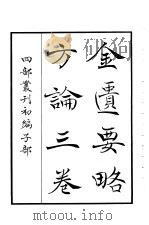 金匱要略
方論三卷
四部叢刊初編子部
mtoou.info